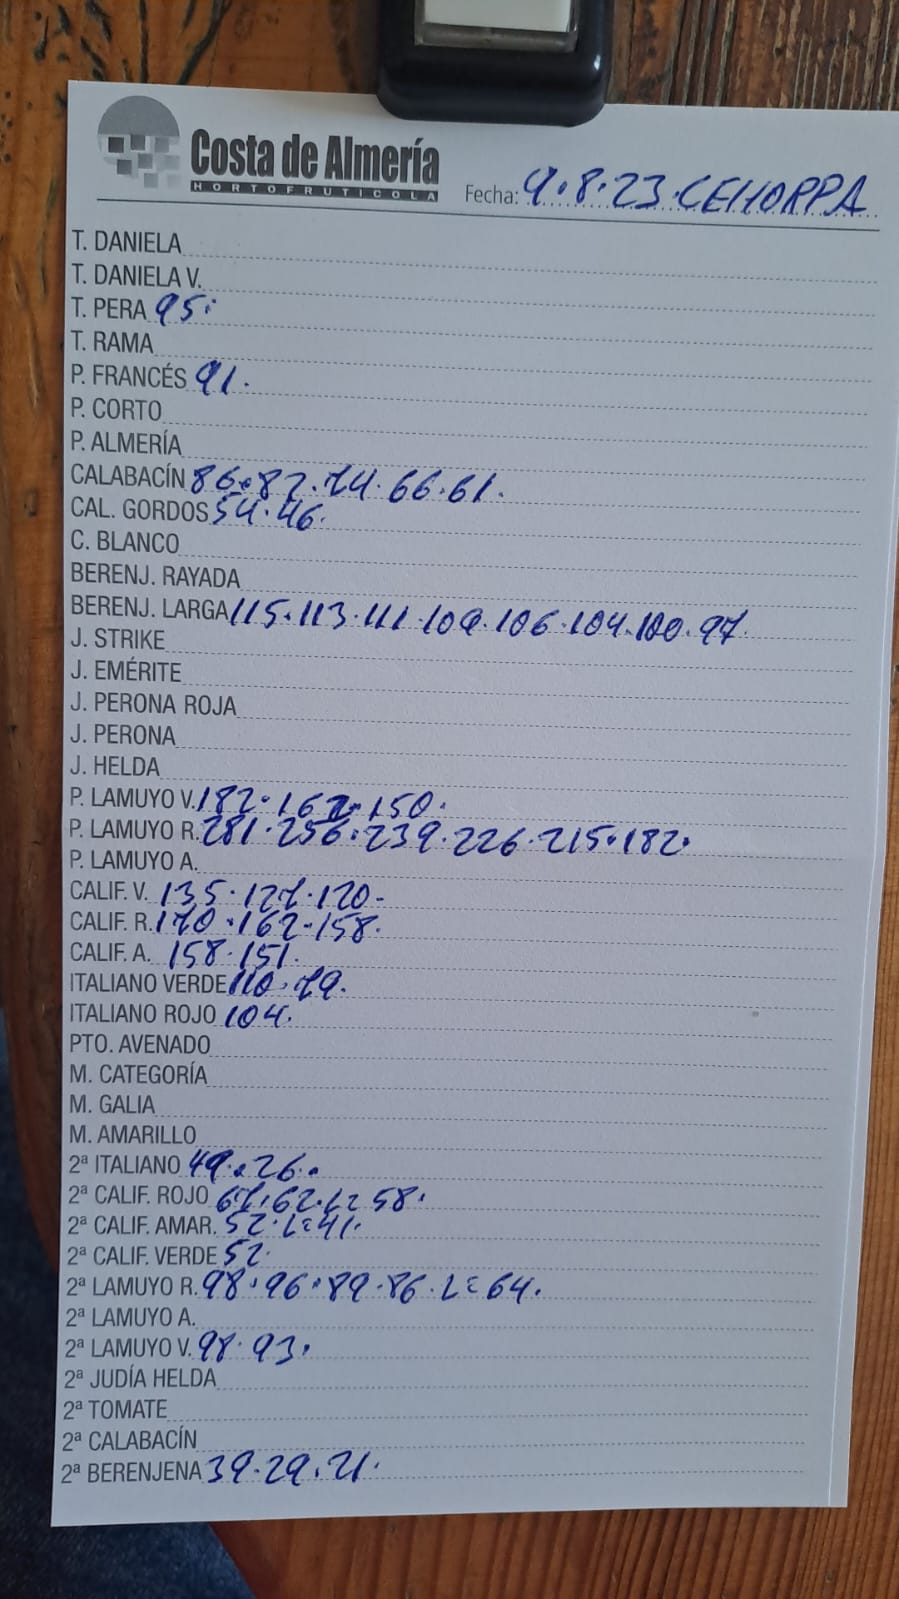 Costa de Almería
HORTOFRUTICOLA
Fecha: 9.8.23.CEHORPA
T. DANIELA
T. DANIELA V.
T. PERA 95.
T. RAMA
P. FRANCÉS 91.
P. CORTO
P. ALMERÍA
CALABACÍN 86.82.74.66.61.
CAL. GORDOS 54.46.
C. BLANCO
BERENJ. RAYADA
BERENJ. LARGA 115.113.111.109.106.104.100.97.
J. STRIKE
J. EMÉRITE
J. PERONA ROJA
J. PERONA
J. HELDA
P. LAMUYO V. 182.162.150.
P. LAMUYO R. 281.256.239.226.215.182.
P. LAMUYO A.
CALIF. V. 135.127.120.
CALIF. R. 170.162.158.
CALIF. A. 158.151.
ITALIANO VERDE 110.79.
ITALIANO ROJO 104.
PTO. AVENADO
M. CATEGORÍA
M. GALIA
M. AMARILLO
2ª ITALIANO 49.26.
2ª CALIF. ROJO 67.62. 58.
2ª CALIF. AMAR. 52. 41.
2ª CALIF. VERDE 52.
2ª LAMUYO R. 98.96.89.86. 64.
2ª LAMUYO A.
2ª LAMUYO V. 98.93.
2ª JUDÍA HELDA
2ª TOMATE
2ª CALABACÍN
2ª BERENJENA 39.29.21.